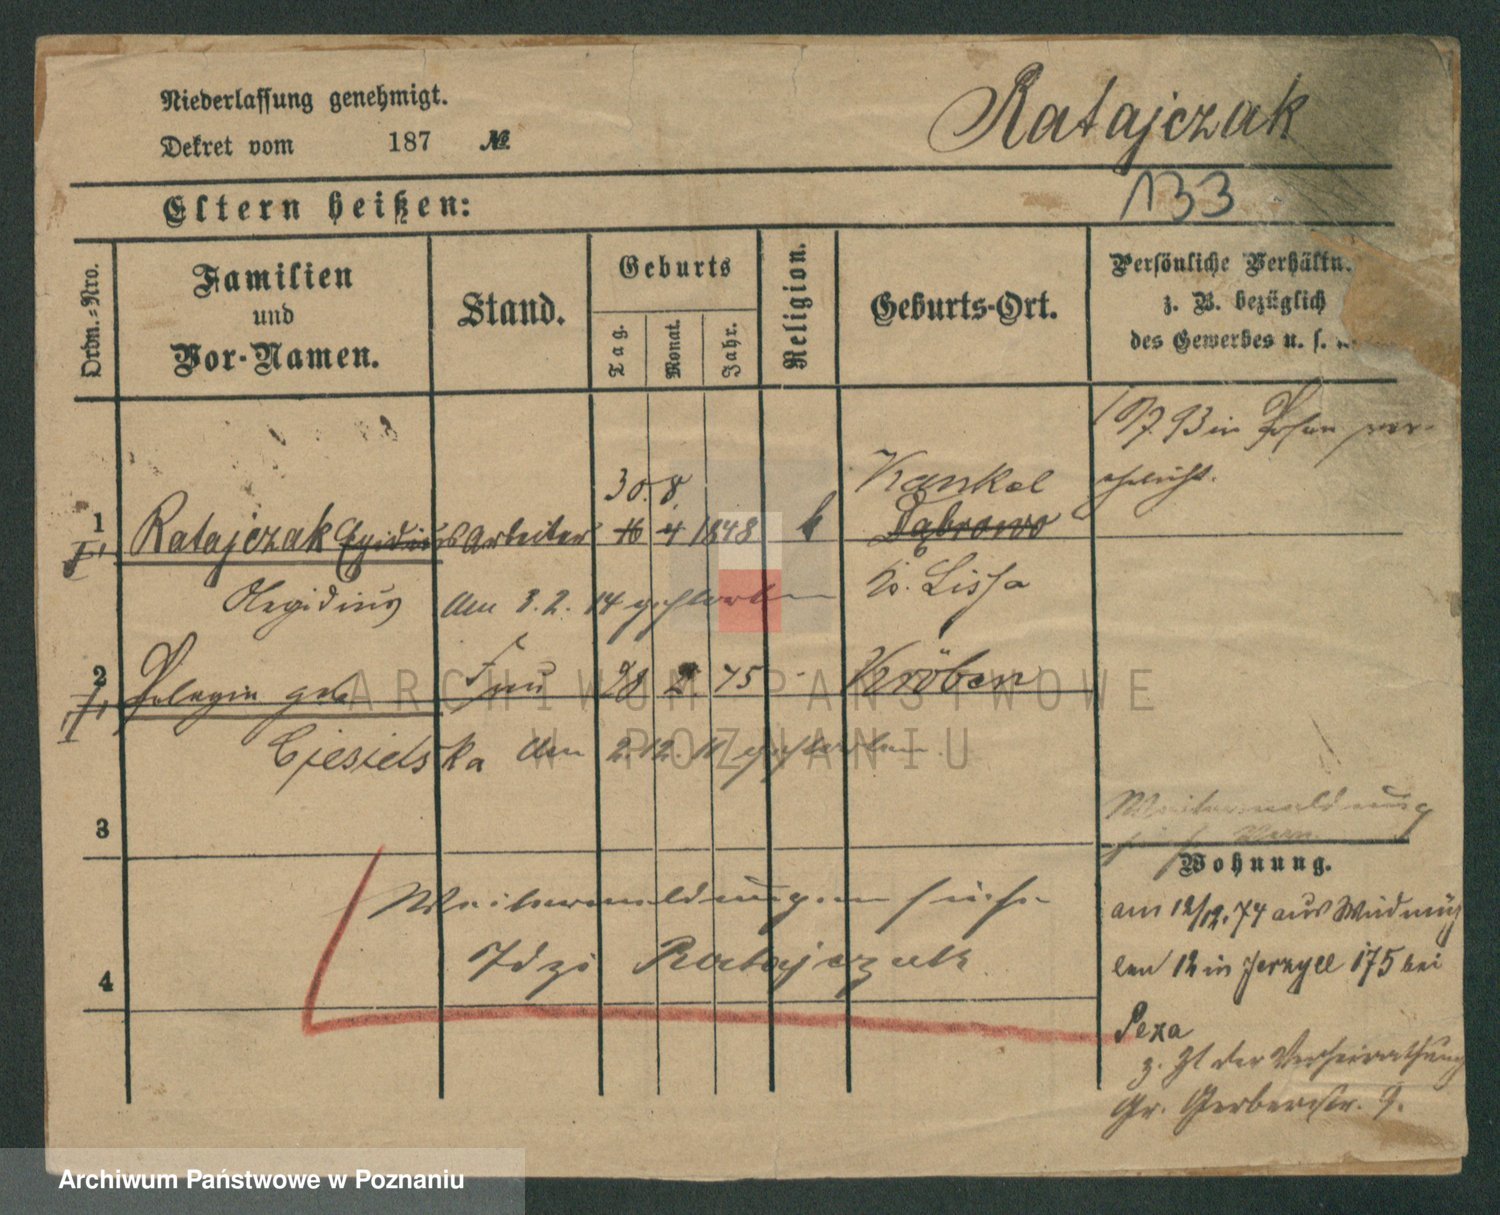 Niederlassung genehmigt.
Dekret vom 187 №
Ratajczak
133
Eltern heißen:
Ordn.-Nro.
Familien
und
Vor-Namen.
Stand.
Geburts
Tag.
Monat.
Jahr.
Religion.
Geburts-Ort.
Persönliche Verhältn.
z. B. bezüglich
des Gewerbes u. s. w.
93 in Posen ver-
ehelicht.
30. 8.
Kankel
1 Ratajczak Egidius Arbeiter 16 4 1848 k Dąbrowo
Aegidius am 3. 2. 14 gestorben K. Lissa
2 Pelagia geb. Frau 28 2 75 - Kröben
Ciesielska am 2. 12. 11 gestorben
3
Weitermeldung
siehe
Wohnung.
Weitermeldungen siehe
Idzi Ratajczak
4
am 12/12. 74 aus Wind müh
len 12 in Jerzyce 175 bei
Pexa
z. Zt der Verheirathung
Gr. Gerberstr. 9.
ARCHIWUM PAŃSTWOWE
W POZNANIU
Archiwum Państwowe w Poznaniu